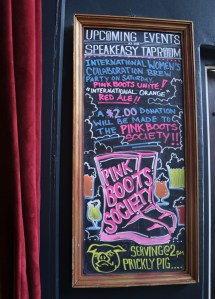 UPCOMING EVENTS
AT THE
SPEAKEASY TAPROOM
INTERNATIONAL WOMEN'S
COLLABORATION BREW
PARTY ON SATURDAY
PINK BOOTS UNITE!
INTERNATIONAL ORANGE
RED ALE!!
A $2.00 DONATION
WILL BE MADE TO
THE PINK BOOTS
SOCIETY!!
PINK
BOOTS
SOCIETY
SERVING@2pm
PRICKLY PIG....